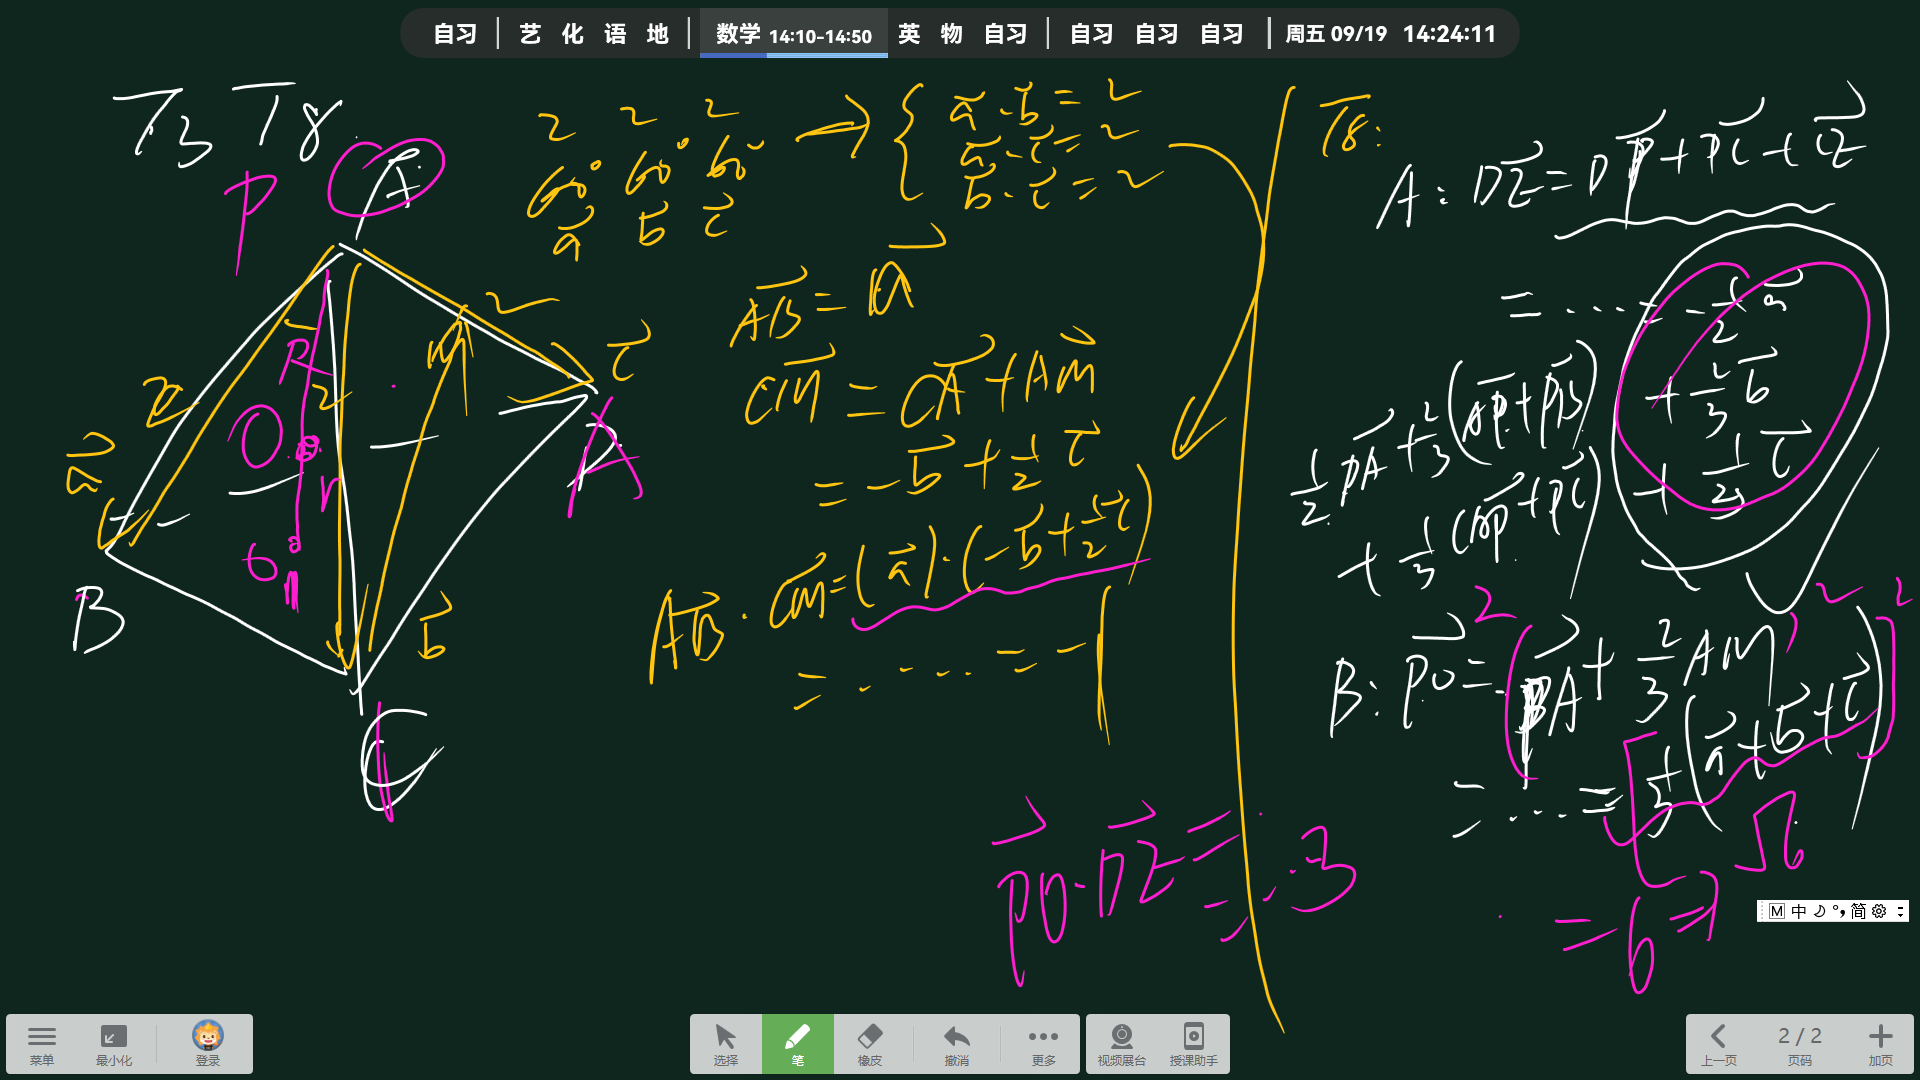 自习 | 艺 化 语 地 | 数学 14:10-14:50 英 物 自习 | 自习 自习 自习 | 周五 09/19 14:24:11
T3 T8
P A
2 2 2
60° 60° 60°
a b c
a·b = 2
a·c = 2
b·c = 2
AB = a
CM = CA + AM
= -b + 1/2 c
AB · CM = (a)·(-b + 1/2 c)
= ..... = -1
a
2
R
2
M
2
c
O
r
B
b
C
P
T8:
A: DE = DP + PC + CE
= .... -1/2 a
+ 2/3 b
+ 1/2 c
1/2 PA + 2/3 (AP + PB)
+ 1/3 (AP + PC)
B: PO = PA + 2/3 AM
= ... = 1/3 (a + b + c)
= 6 ⇒
PO · DE = ... 3
M 中 简
菜单 最小化 登录
选择 笔 橡皮 撤消 更多
视频展台 授课助手
上一页 2 / 2 页码 加页